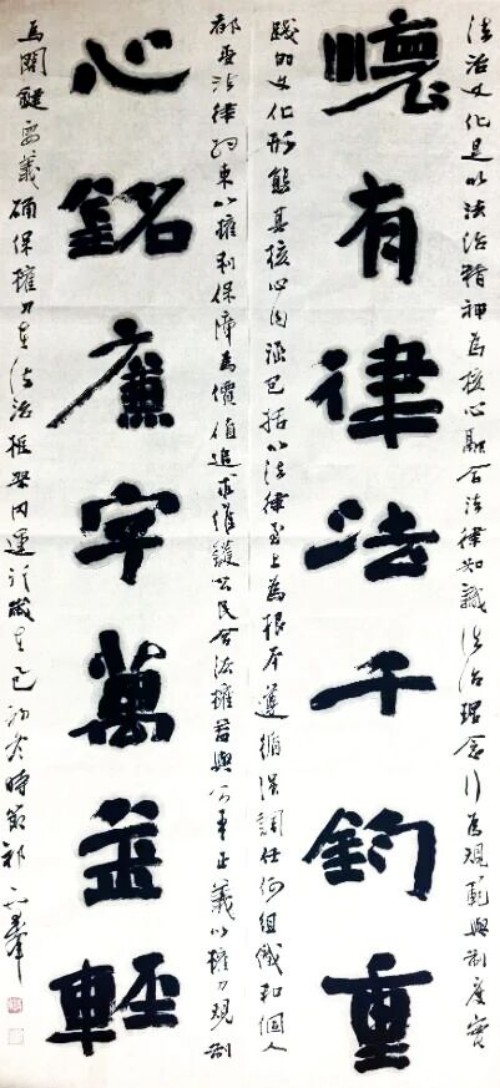 法治文化是以法治精神為核心融合法律知識法治理念行為規範與制度實
懷有律法千鈞重
踐的文化形態其核心内涵包括以法律至上為根本遵循强調任何組織和個人
都受法律約束以權利保障為價值追求維護公民合法權益與公平正義以權力規制
心銘廉字萬益輕
為關鍵要義确保權力在法治框架内運行歲在乙巳初冬時節祁